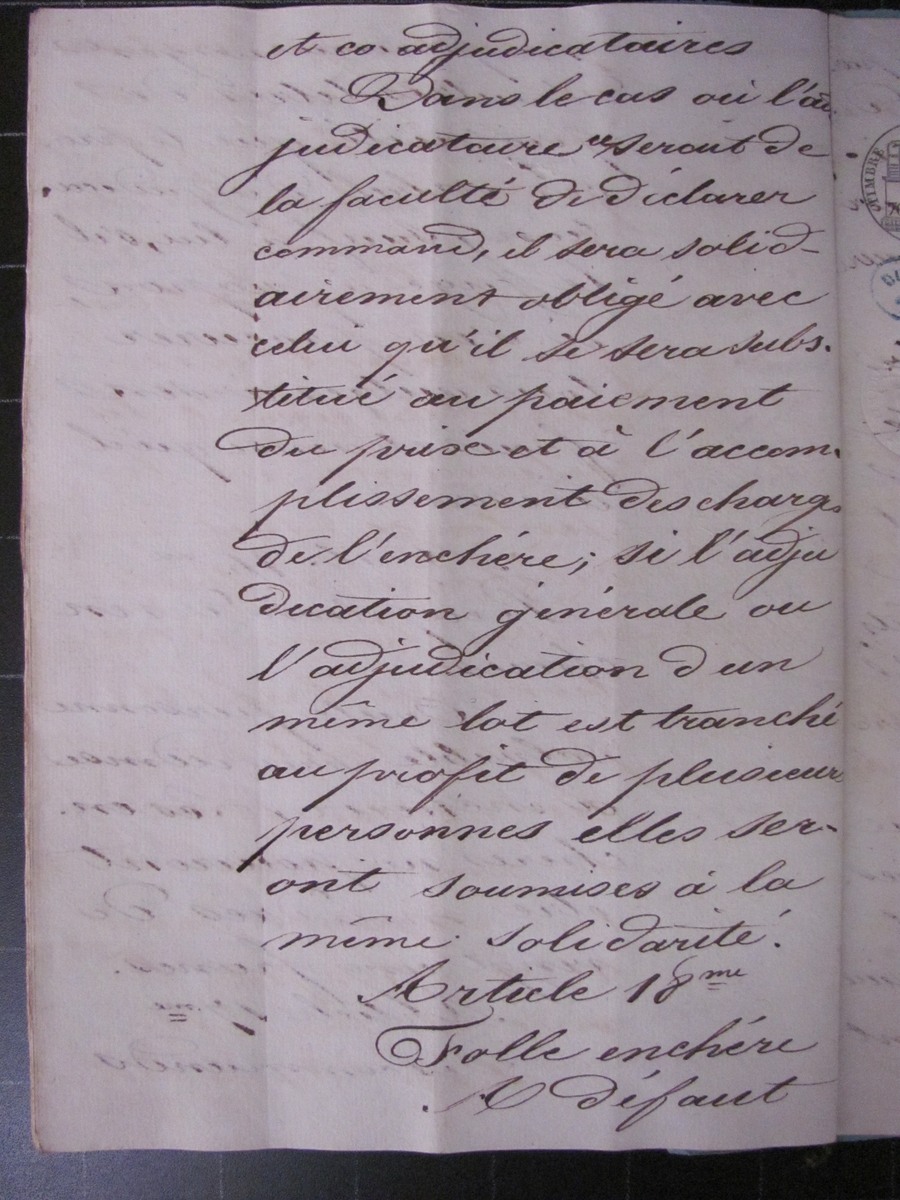 et co-adjudicataires
Dans le cas où l'ad
judicataire userait de
la faculté de déclarer
command, il sera solid-
airement obligé avec
celui qu'il se sera subs-
titué au paiement
du prix et à l'accom-
plissement des charges
de l'enchére; si l'adju
dication générale ou
l'adjudication d'un
même lot est tranché
au profit de plusieurs
personnes elles ser-
ont soumises à la
même solidarité.
Article 18me
Folle enchére
A défaut
TIMBRE